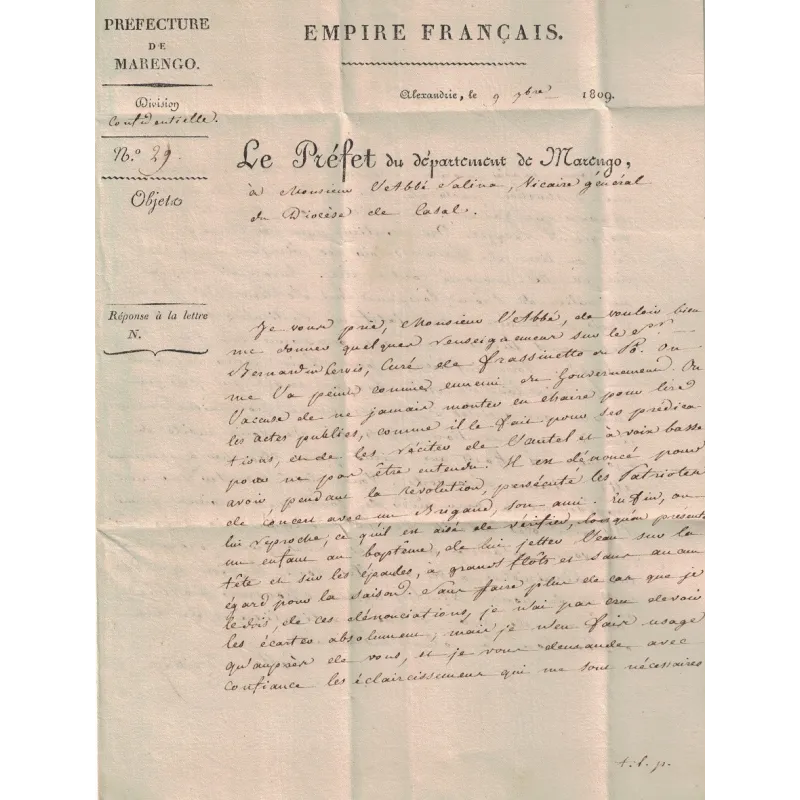 PRÉFECTURE
DE
MARENGO.
Division
Confidentielle.
N.º 29.
Objet
Réponse à la lettre
N.
EMPIRE FRANÇAIS.
Alexandrie, le 9 9bre 1809.
Le Préfet du département de Marengo,
à Monsieur l'Abbé Salina, Vicaire général
du Diocèse de Casal.
Je vous prie, Monsieur l'Abbé, de vouloir bien
me donner quelques renseignemens sur le Sr
Bernardin Cervis, Curé de Frassinetto du Pô. On
me l'a peint comme ennemi du Gouvernement. On
l'accuse de ne jamais monter en chaire pour lire
les actes publics, comme il le fait pour ses prédica
tions, et de les réciter de l'autel et à voix basse
pour ne pas être entendu. Il est dénoncé pour
avoir, pendant la révolution, persécuté les Patriotes
de concert avec un Brigand, son ami. Enfin, on
lui reproche, ce qu'il est aisé de vérifier, lorsqu'on présente
un enfant au baptême, de lui jetter l'eau sur la
tête et sur les épaules, à grands flots et sans aucun
égard pour la saison. Sans faire plus de cas que je
le dois, de ces dénonciations, je n'ai pas cru devoir
les écarter absolument, mais je n'en fais usage
qu'auprès de vous, et je vous demande avec
confiance les éclaircissemens qui me sont nécessaires
t.s.p.